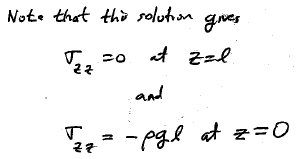 Note that this solution gives
T_zz = 0 at z = l
and
T_zz = -ρgl at z = 0